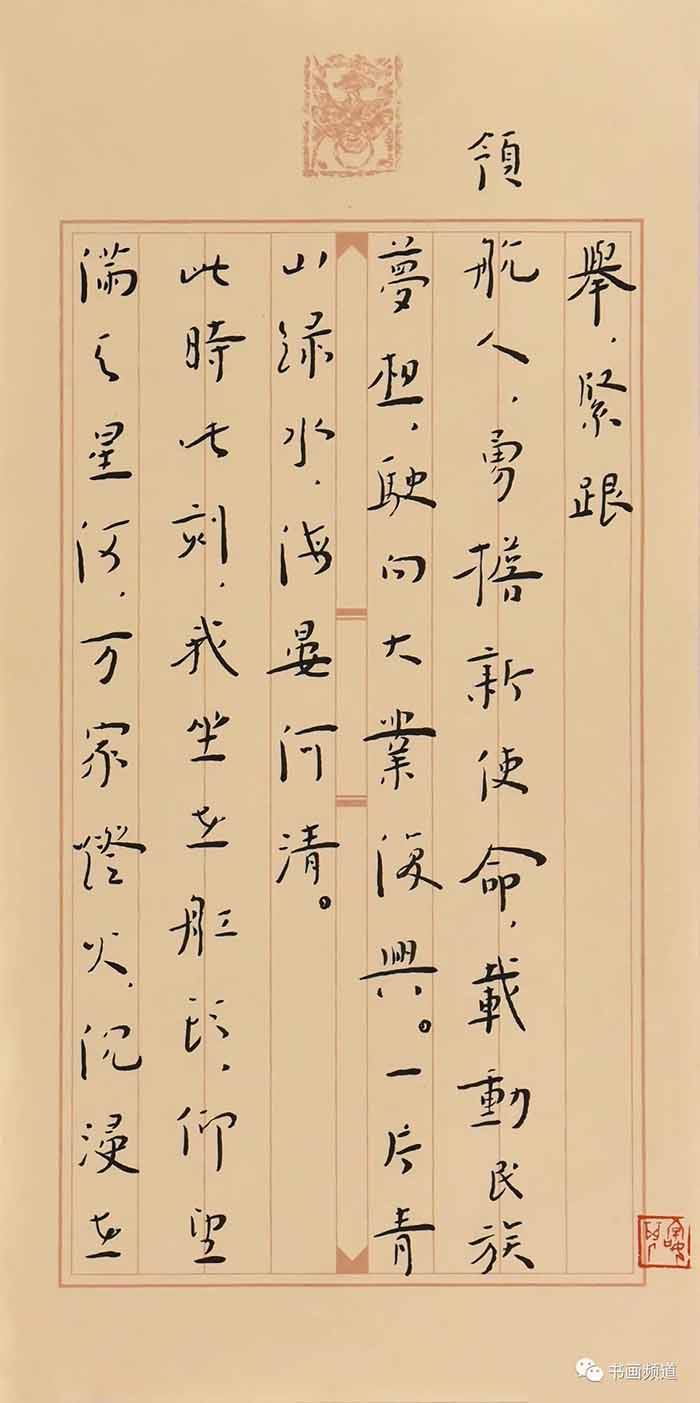 舉，緊跟
領航人，勇擔新使命，載動民族
夢想，駛向大業復興。一片青
山綠水，海晏河清。
此時此刻，我坐在船頭，仰望
滿天星河，万家燈火，沉浸在
书画频道